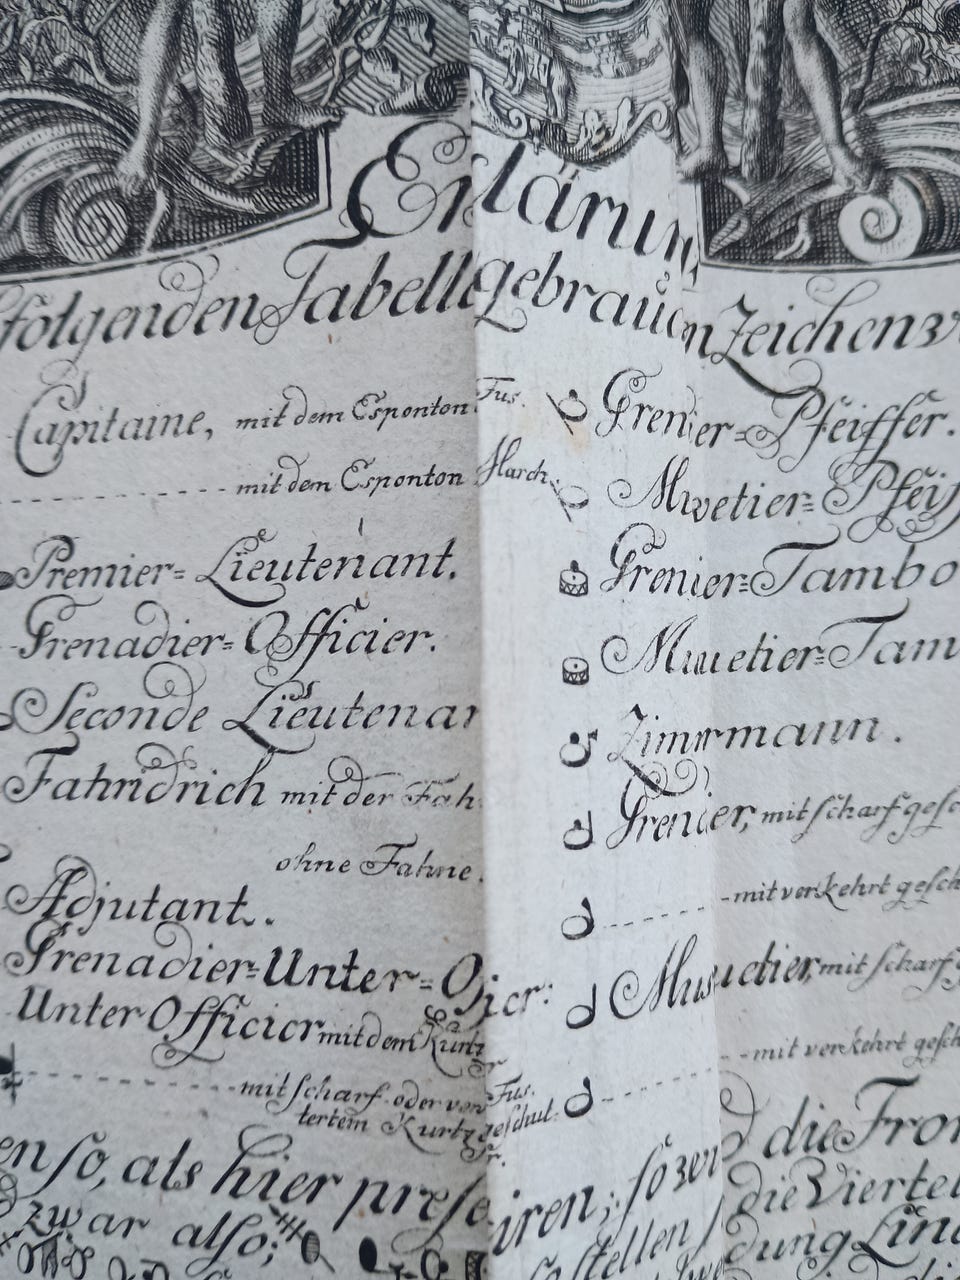 Erklärung
folgenden Tabelle gebrauch n Zeichen
Capitaine, mit dem Esponton Fus.
mit dem Esponton March.
Premier-Lieutenant.
Grenadier-Officier.
Seconde Lieutenan
Fahndrich mit der Fah
ohne Fahne.
Adjutant.
Grenadier-Unter-O icr:
Unter Officier mit dem Kurtz
mit scharf oder ver Fus.
tertem Kurtz geschul.
Gren ier-Pfeiffer.
M etier-Pfeif
Gren ier-Tambo
M etier-Tam
Zimmermann.
Gren ier, mit scharf gesch
mit verkehrt gesch
Mus etier, mit scharf g
mit verkehrt gesch
en so, als hier pres iren; so d die Fron
zwar also; stellen die Viertel
dung Lin